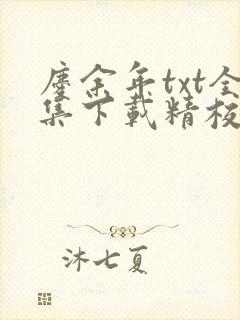 廛余年txt全
集下载精校
沐七夏